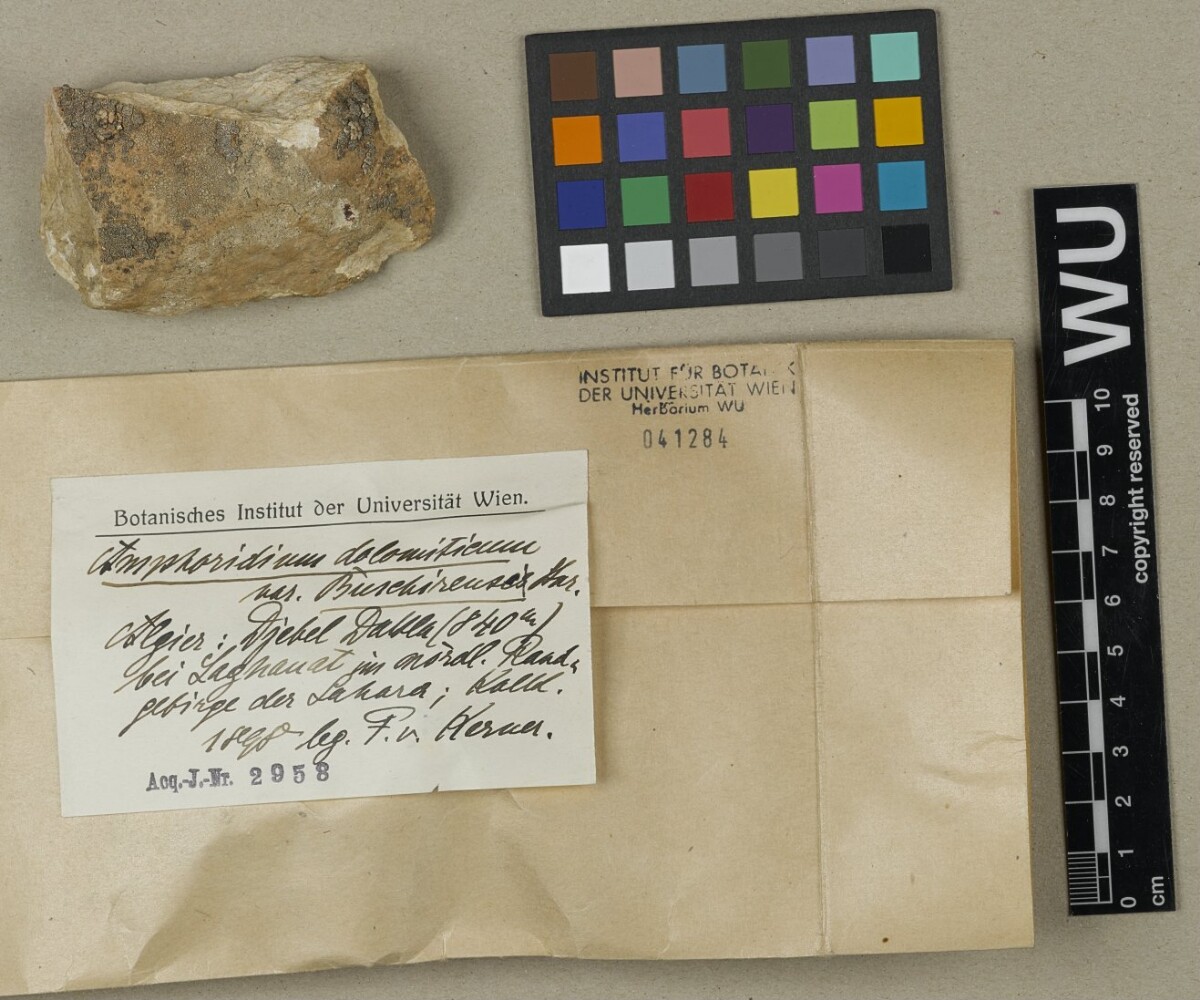 INSTITUT FÜR BOTANIK
DER UNIVERSITÄT WIEN
Herbarium WU
041284
Botanisches Institut der Universität Wien.
Amphoridium dolomiticum
var. Buschirensis Har.
Algier: Djebel Dabla (840 m)
bei Laghouat im nördl. Rand-
gebirge der Sahara; Kalk.
1898 leg. F. v. Kerner.
Acq.-J.-Nr. 2958
WU
copyright reserved
0 1 2 3 4 5 6 7 8 9 10
cm